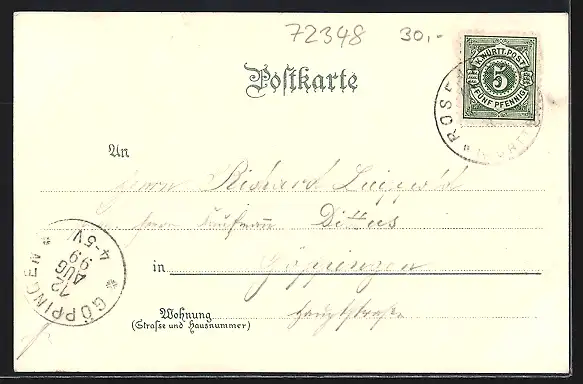 72348 30,-
K. WÜRTT. POST
5
FÜNF PFENNIG
ROSE
Postkarte
An
Herrn Richard Luippold
Herrn Kaufmann Dittus
in Göppingen
Wohnung Hauptstraße
(Straße und Hausnummer)
GÖPPINGEN
12 AUG 99
4-5 V